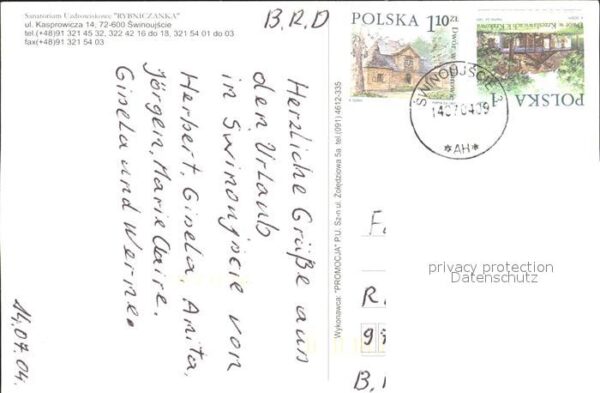 Sanatorium Uzdrowiskowe "RYBNICZANKA"
ul. Kasprowicza 14, 72-600 Świnoujście
tel.(+48)91 321 45 32, 322 42 16 do 18, 321 54 01 do 03
fax(+48)91 321 54 03
B.R.D
Herzliche Grüße aus
den Urlaub
in Świnoujście von
Herbert, Gisela, Anita,
Jörgen, Marie Claire,
Gisela und Werner.
14.07.04.
Wykonawca: "PROMOCJA" P.U. Sz-n ul. Żołędziowa 5a tel.(091) 4612-335
POLSKA
1,10 ZŁ
POLSKA
1
ŚWINOUJŚCIE 2
140704.09
*AH*
F
R.
9
B.
privacy protection
Datenschutz